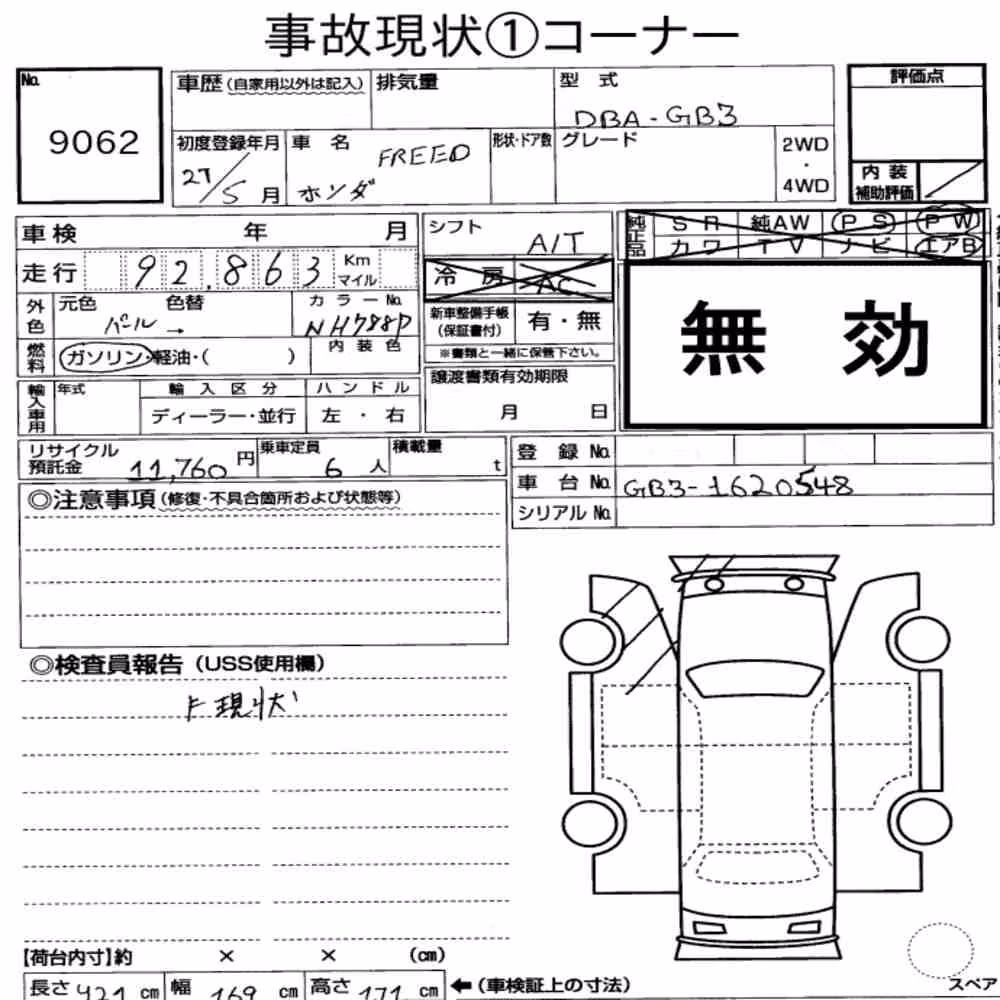 事故現状①コーナー
No. 9062
車歴(自家用以外は記入) 排気量 型式 DBA-GB3 評価点
初度登録年月 27/5月 車名 ホンダ FREED 形状・ドア数 グレード 2WD・4WD 内装補助評価
車検 年 月 シフト A/T 純正品 SR 純AW PS PW
カワ TV ナビ エアB
走行 92,863 Km マイル 冷房 AC 無効
外色 元色 パール→ 色替 カラーNo. NH788P 新車整備手帳(保証書付) 有・無
燃料 ガソリン・軽油・( ) 内装色 ※書類と一緒に保管下さい。
輸入車用 年式 輸入区分 ディーラー・並行 ハンドル 左・右 譲渡書類有効期限 月 日
リサイクル預託金 11,760円 乗車定員 6人 積載量 t 登録No.
車台No. GB3-1620548
シリアルNo.
◎注意事項(修復・不具合箇所および状態等)
◎検査員報告(USS使用欄)
F現状
【荷台内寸】約 × × (cm)
長さ 421 cm 幅 169 cm 高さ 171 cm ←(車検証上の寸法)
スペア